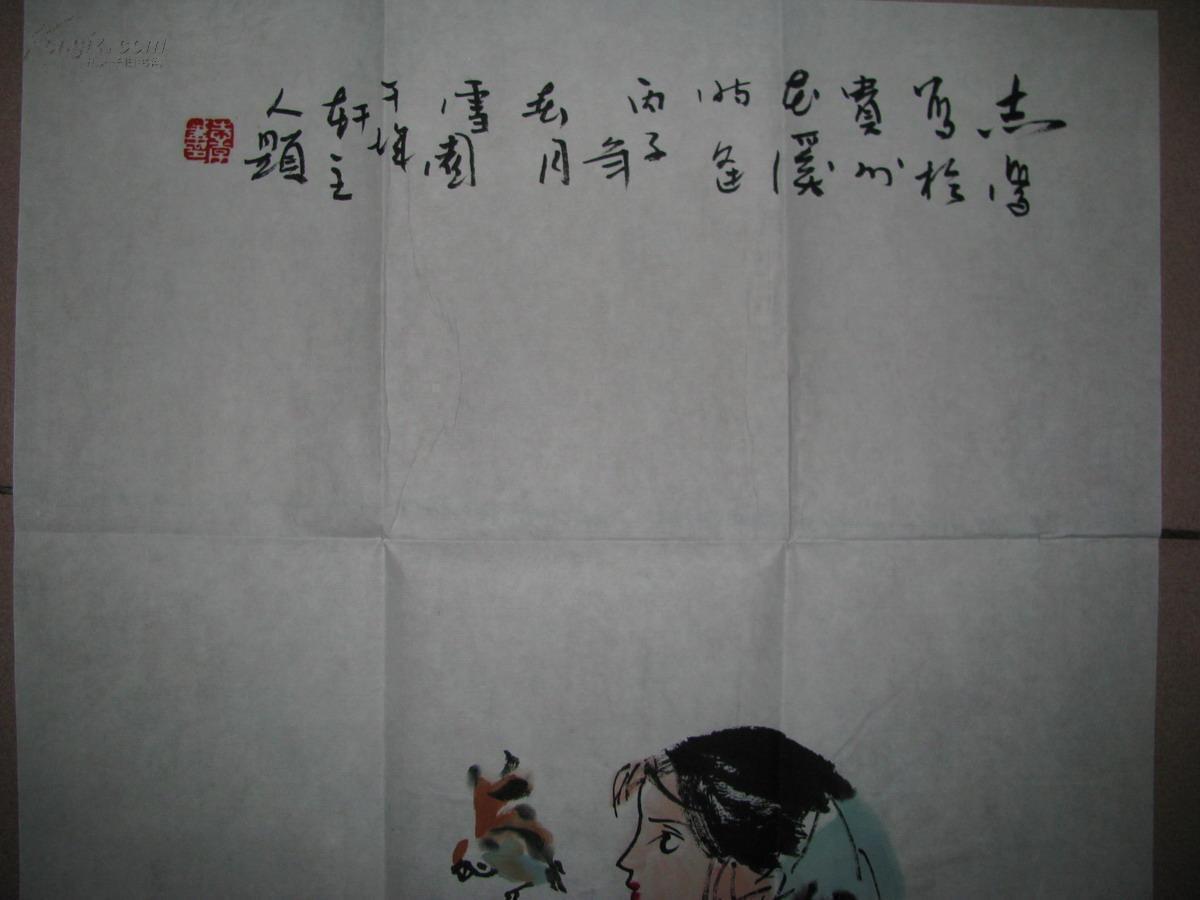 志學
寫於
貴州
花溪
時逢
丙子
年
春月
雪園
軒主
人題
kongfz.com